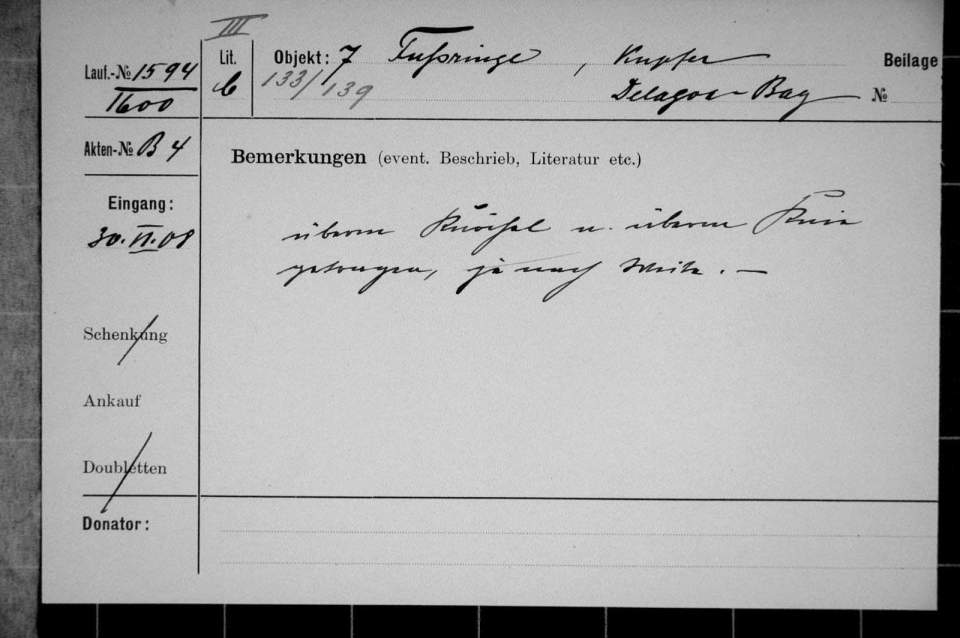 III
Lauf.-№ 1594
1600
Lit.
b
Objekt: 7 Fußringe, Kupfer
133/139
Delagoa-Bay
Beilage
№
Akten-№ B 4
Bemerkungen (event. Beschrieb, Literatur etc.)
Eingang:
30.VI.08
überm Knöchel u. überm Knie
getragen, je nach Weite. —
Schenkung
Ankauf
Doubletten
Donator: